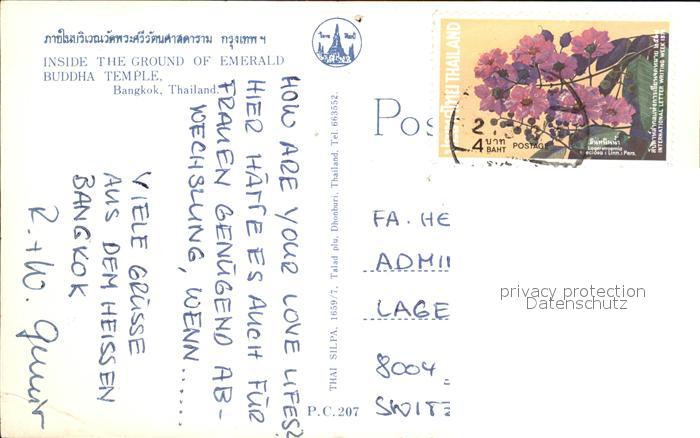 ภายในบริเวณวัดพระศรีรัตนศาสดาราม กรุงเทพฯ
INSIDE THE GROUND OF EMERALD
BUDDHA TEMPLE,
Bangkok, Thailand.
HOW ARE YOUR LOVE LIFES?
HIER HÄTTE ES AUCH FÜR
FRAUEN GENÜGEND AB-
WECHSLUNG, WENN......
VIELE GRÜSSE
AUS DEM HEISSEN
BANGKOK
R.+W.
THAI SILPA, 1659/7, Talad plu, Dhonburi, Thailand, Tel. 663552.
P.C.207
Pos
ประเทศไทย THAILAND
2
4 บาท
BAHT POSTAGE
อินทนิลน้ำ
Lagerstroemia
speciosa : Linn.: Pers.
INTERNATIONAL LETTER WRITING WEEK
FA. HE
ADMI
LAGE
8004
SWIT
privacy protection
Datenschutz